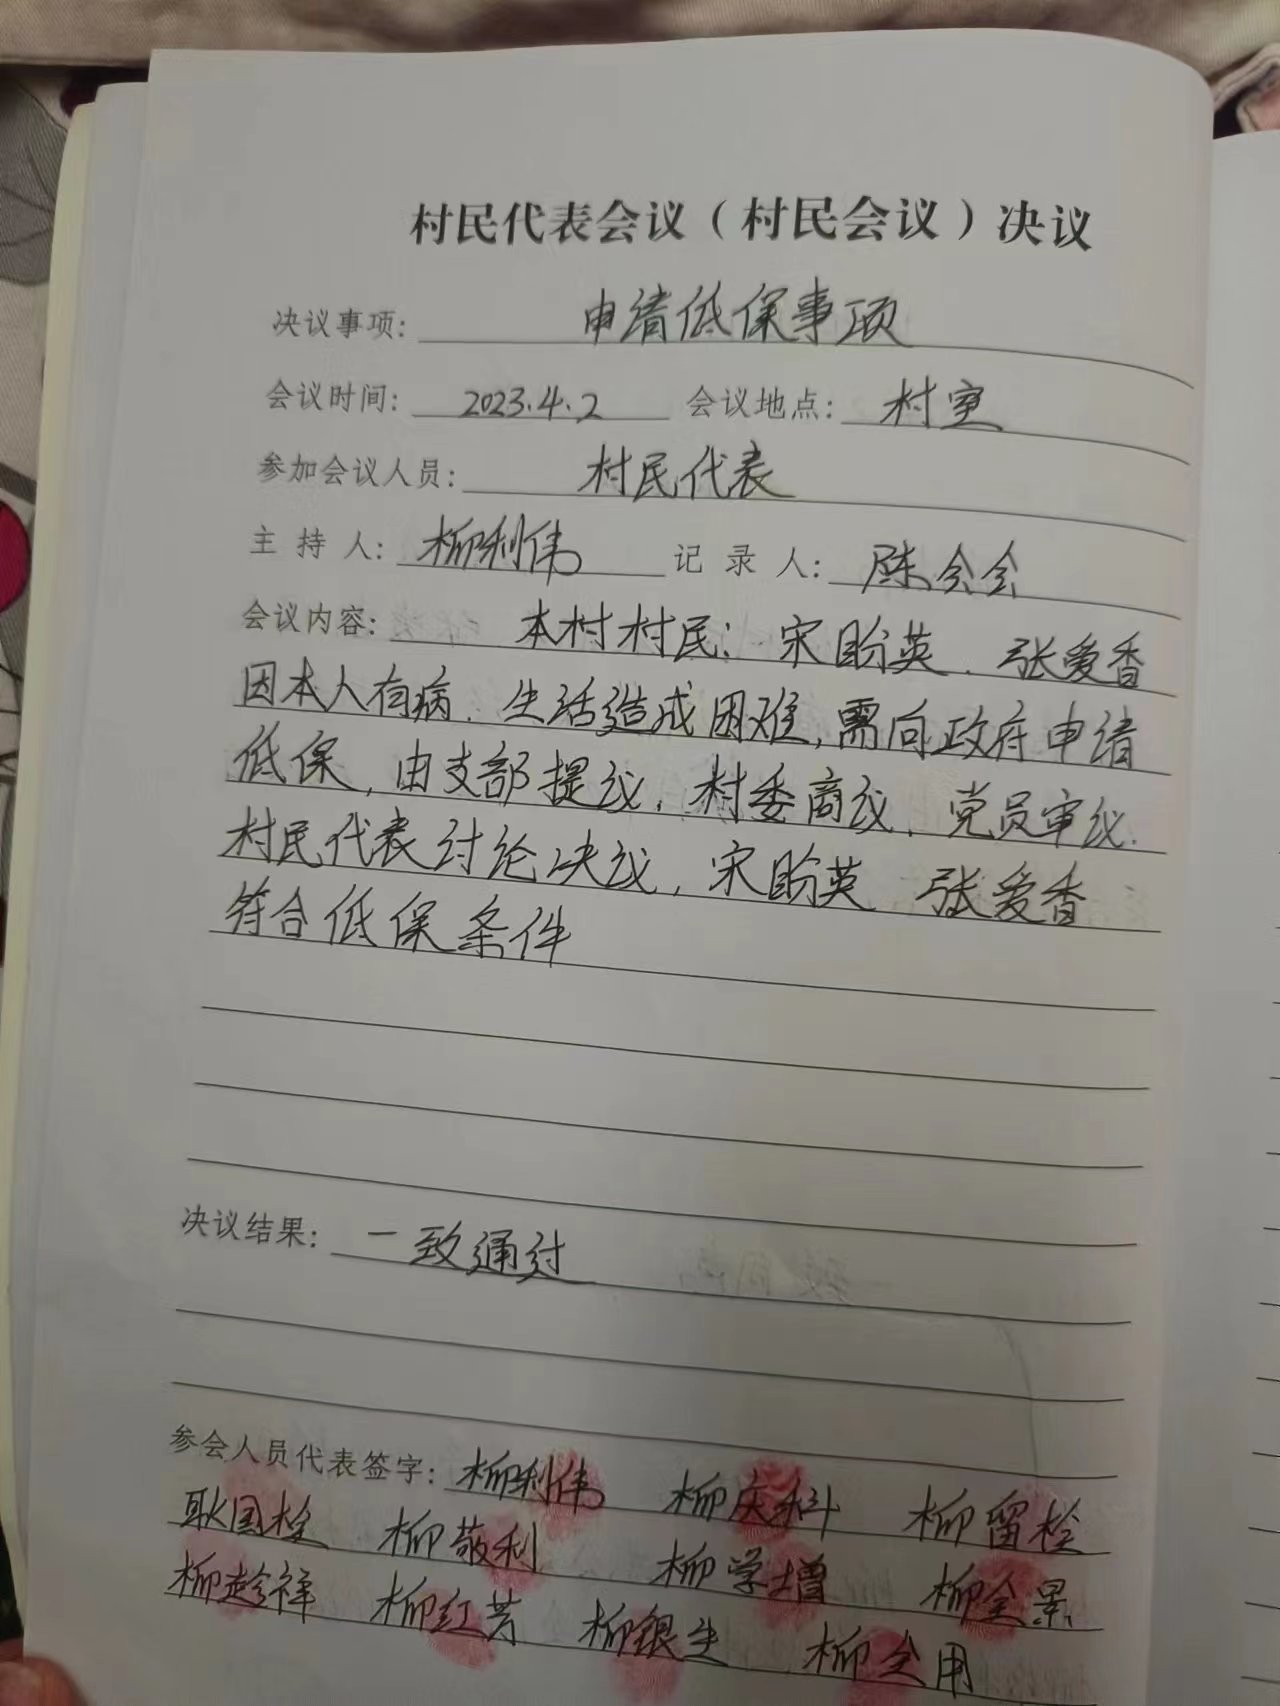 村民代表会议（村民会议）决议
决议事项: 申请低保事项
会议时间: 2023.4.2 会议地点: 村室
参加会议人员: 村民代表
主持人: 柳利伟 记录人: 陈会会
会议内容: 本村村民: 宋盼英、张爱香
因本人有病、生活造成困难, 需向政府申请
低保, 由支部提议, 村委商议、党员审议、
村民代表讨论决议, 宋盼英 张爱香
符合低保条件
决议结果: 一致通过
参会人员代表签字: 柳利伟 柳庆科 柳留栓
耿国栓 柳敬利 柳学增 柳全景
柳趁祥 柳红芳 柳银生 柳全用